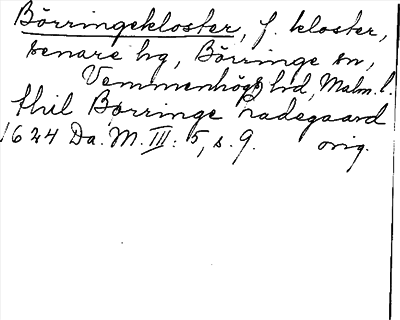 Börringekloster, f. kloster,
senare hg, Börringe sn,
Vemmenhögs hd, Malm. l.
thil Børringe ladegaard
1624 Da. M. III: 5, s. 9. orig.